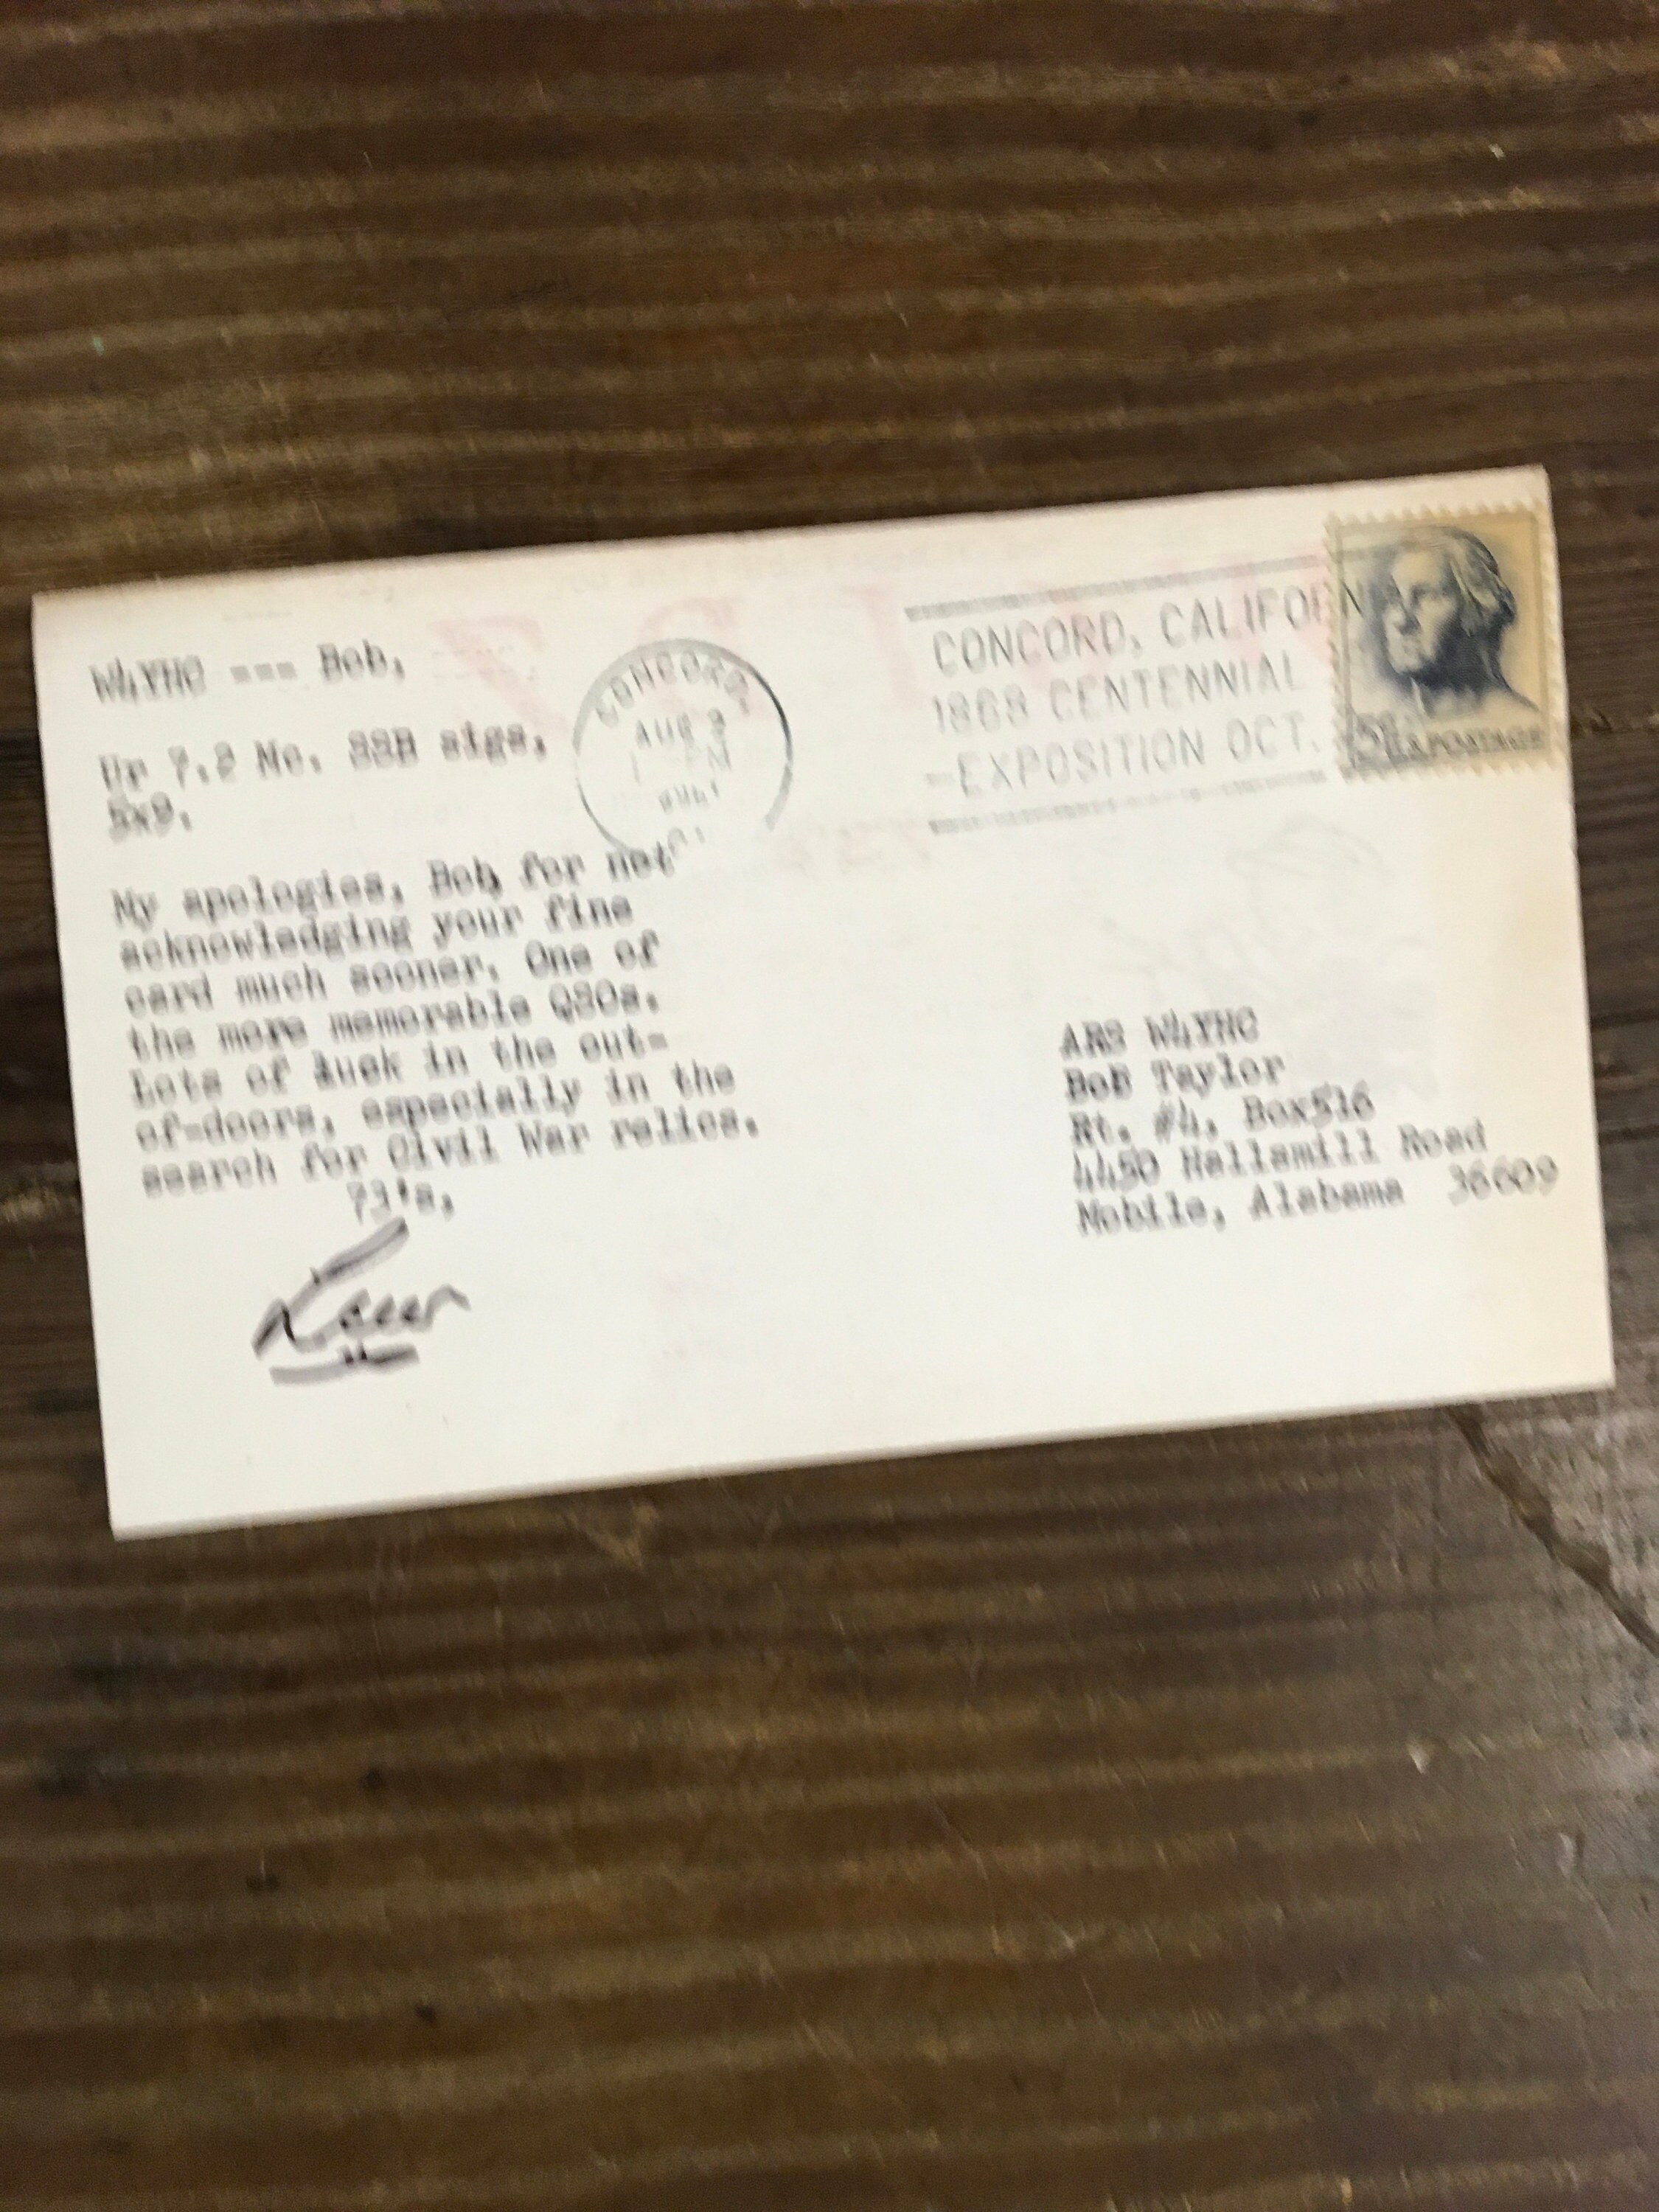 W4YHC === Bob,
Ur 7.2 Mc. SSB sigs,
5x9.
My apologies, Bob, for not
acknowledging your fine
card much sooner. One of
the more memorable QSOs.
Lots of luck in the out-
of-doors, especially in the
search for Civil War relics.
73's,
CONCORD,
AUG 3
PM
CONCORD, CALIFORN
1868 CENTENNIAL
EXPOSITION OCT.
5¢ U.S. POSTAGE
ARS W4YHC
Bob Taylor
Rt. #4, Box516
4450 Hallsmill Road
Mobile, Alabama 36609